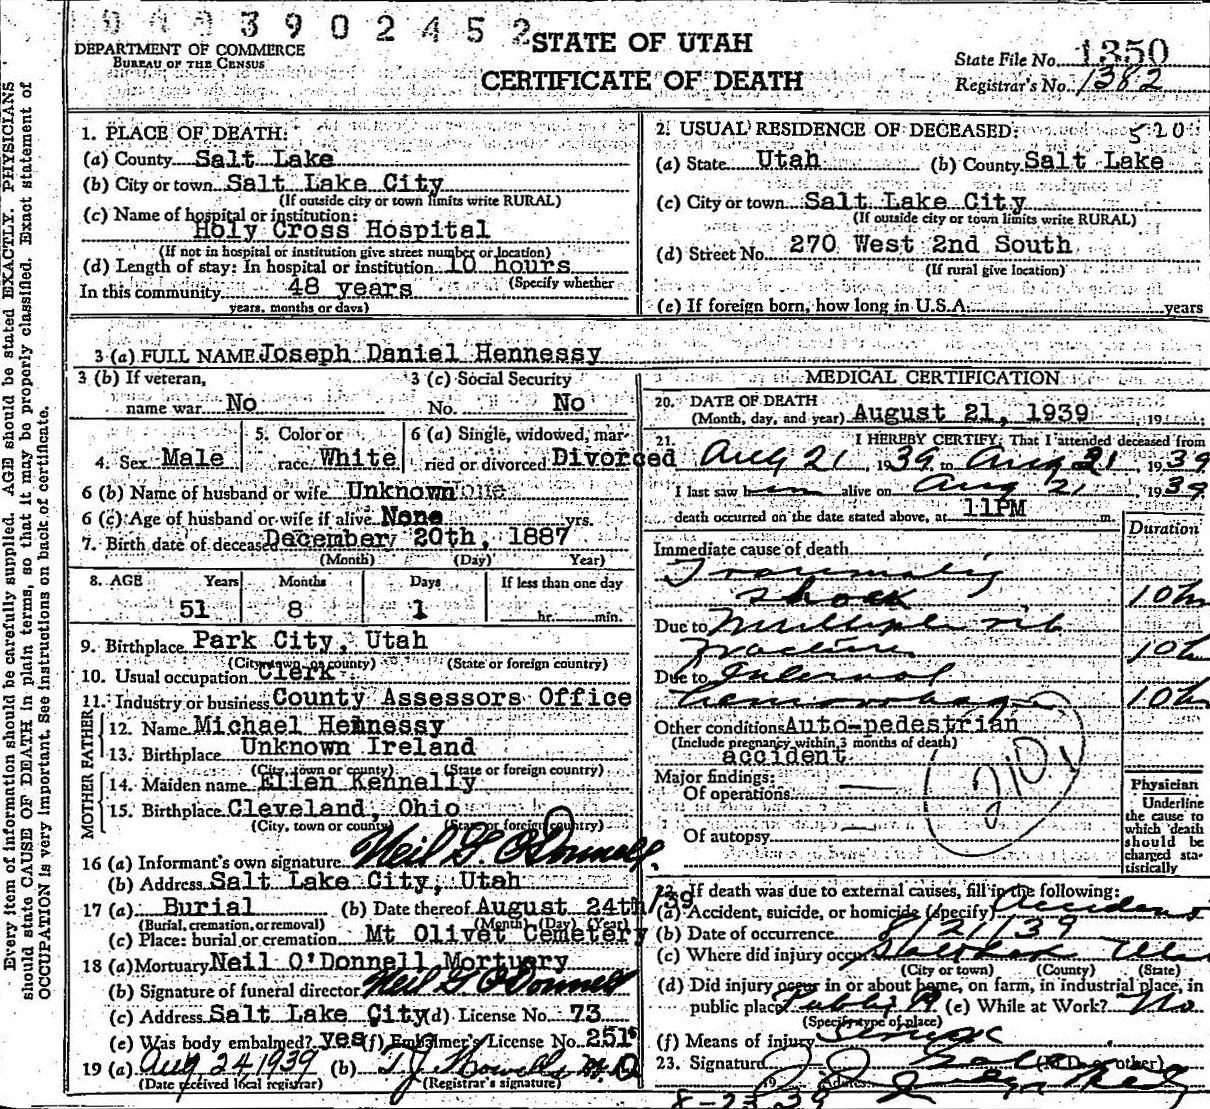 3 9 0 2 4 5 2
DEPARTMENT OF COMMERCE
BUREAU OF THE CENSUS
STATE OF UTAH
CERTIFICATE OF DEATH
State File No. 1350
Registrar's No. 1382
Every item of information should be carefully supplied. AGE should be stated EXACTLY. PHYSICIANS
should state CAUSE OF DEATH in plain terms, so that it may be properly classified. Exact statement of
OCCUPATION is very important. See instructions on back of certificate.
1. PLACE OF DEATH:
(a) County Salt Lake
(b) City or town Salt Lake City
(If outside city or town limits write RURAL)
(c) Name of hospital or institution:
Holy Cross Hospital
(If not in hospital or institution give street number or location)
(d) Length of stay: In hospital or institution 10 hours
(Specify whether
In this community 48 years
years, months or days)
2. USUAL RESIDENCE OF DECEASED: 520
(a) State Utah (b) County Salt Lake
(c) City or town Salt Lake City
(If outside city or town limits write RURAL)
(d) Street No. 270 West 2nd South
(If rural give location)
(e) If foreign born, how long in U.S.A. years
3 (a) FULL NAME Joseph Daniel Hennessy
3 (b) If veteran, name war No
3 (c) Social Security No. No
4. Sex Male
5. Color or race White
6 (a) Single, widowed, married or divorced Divorced
6 (b) Name of husband or wife Unknown
6 (c) Age of husband or wife if alive None yrs.
7. Birth date of deceased December 20th, 1887
(Month) (Day) Year)
8. AGE Years Months Days If less than one day
51 8 1 hr. min.
9. Birthplace Park City, Utah
(City, town or county) (State or foreign country)
10. Usual occupation Clerk
11. Industry or business County Assessors Office
FATHER
12. Name Michael Hennessy
13. Birthplace Unknown Ireland
(City, town or county) (State or foreign country)
MOTHER
14. Maiden name Ellen Kennelly
15. Birthplace Cleveland, Ohio
(City, town or county) (State or foreign country)
16 (a) Informant's own signature Neil G O'Donnell
(b) Address Salt Lake City, Utah
17 (a) Burial (b) Date thereof August 24th/39
(Burial, cremation, or removal) (Month) (Day) (Year)
(c) Place: burial or cremation Mt Olivet Cemetery
18 (a) Mortuary Neil O'Donnell Mortuary
(b) Signature of funeral director Neil G O'Donnell
(c) Address Salt Lake City (d) License No. 73
(e) Was body embalmed? yes (f) Embalmer's License No. 251
19 (a) Aug 24, 1939 (b) T.J. Howells M.D
(Date received local registrar) (Registrar's signature)
MEDICAL CERTIFICATION
20. DATE OF DEATH
(Month, day, and year) August 21, 1939 19
21. I HEREBY CERTIFY, That I attended deceased from
Aug 21, 1939 to Aug 21, 1939
I last saw him alive on Aug 21 1939
death occurred on the date stated above, at 11PM m.
Duration
Immediate cause of death
Traumatic
shock 10 hr
Due to Multiple rib
fractures 10 hr
Due to Internal
hemorrhage 10 hr
Other conditions Auto-pedestrian
(Include pregnancy within 3 months of death)
accident
2101
Major findings:
Of operations —
Of autopsy —
Physician
Underline
the cause to
which death
should be
charged sta-
tistically
22. If death was due to external causes, fill in the following:
(a) Accident, suicide, or homicide (specify) Accident
(b) Date of occurrence 8/21/39
(c) Where did injury occur Salt Lake
(City or town) (County) (State)
(d) Did injury occur in or about home, on farm, in industrial place, in
public place Public (e) While at Work? No
(Specify type of place)
(f) Means of injury
23. Signature (M.D. or other)
19 Address
8-23-39